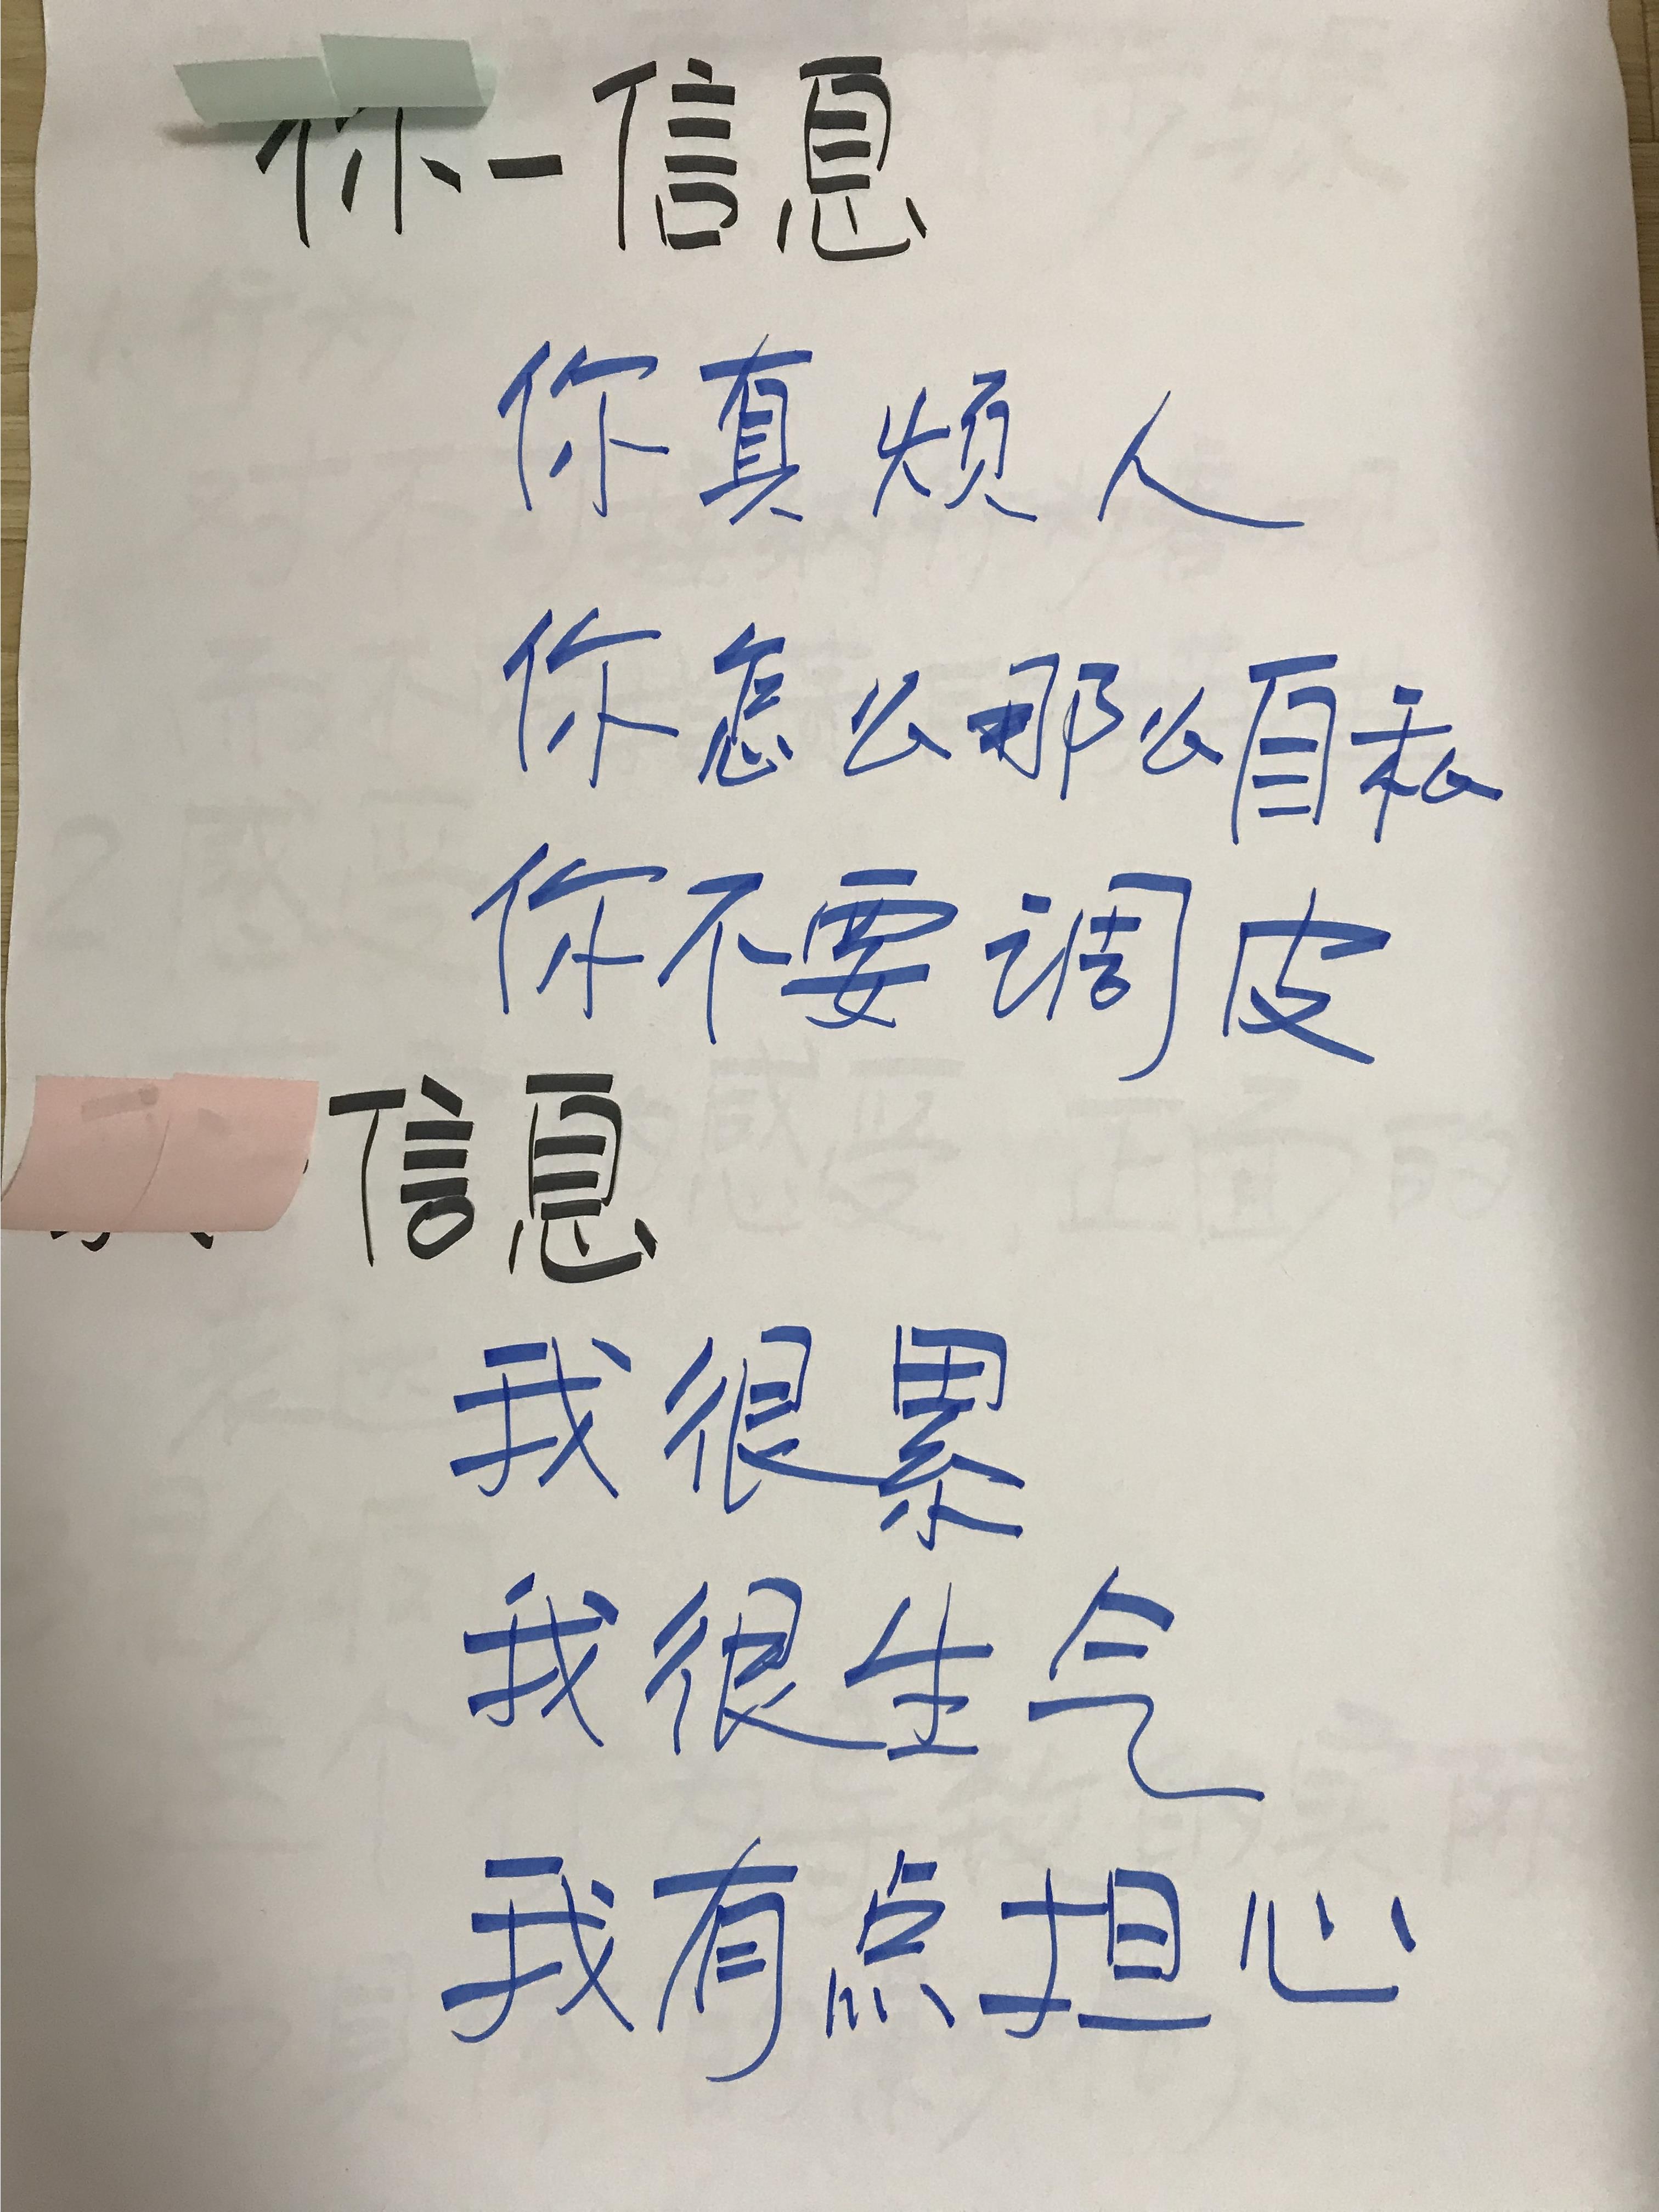 你-信息
你真烦人
你怎么那么自私
你不要调皮
信息
我很累
我很生气
我有点担心